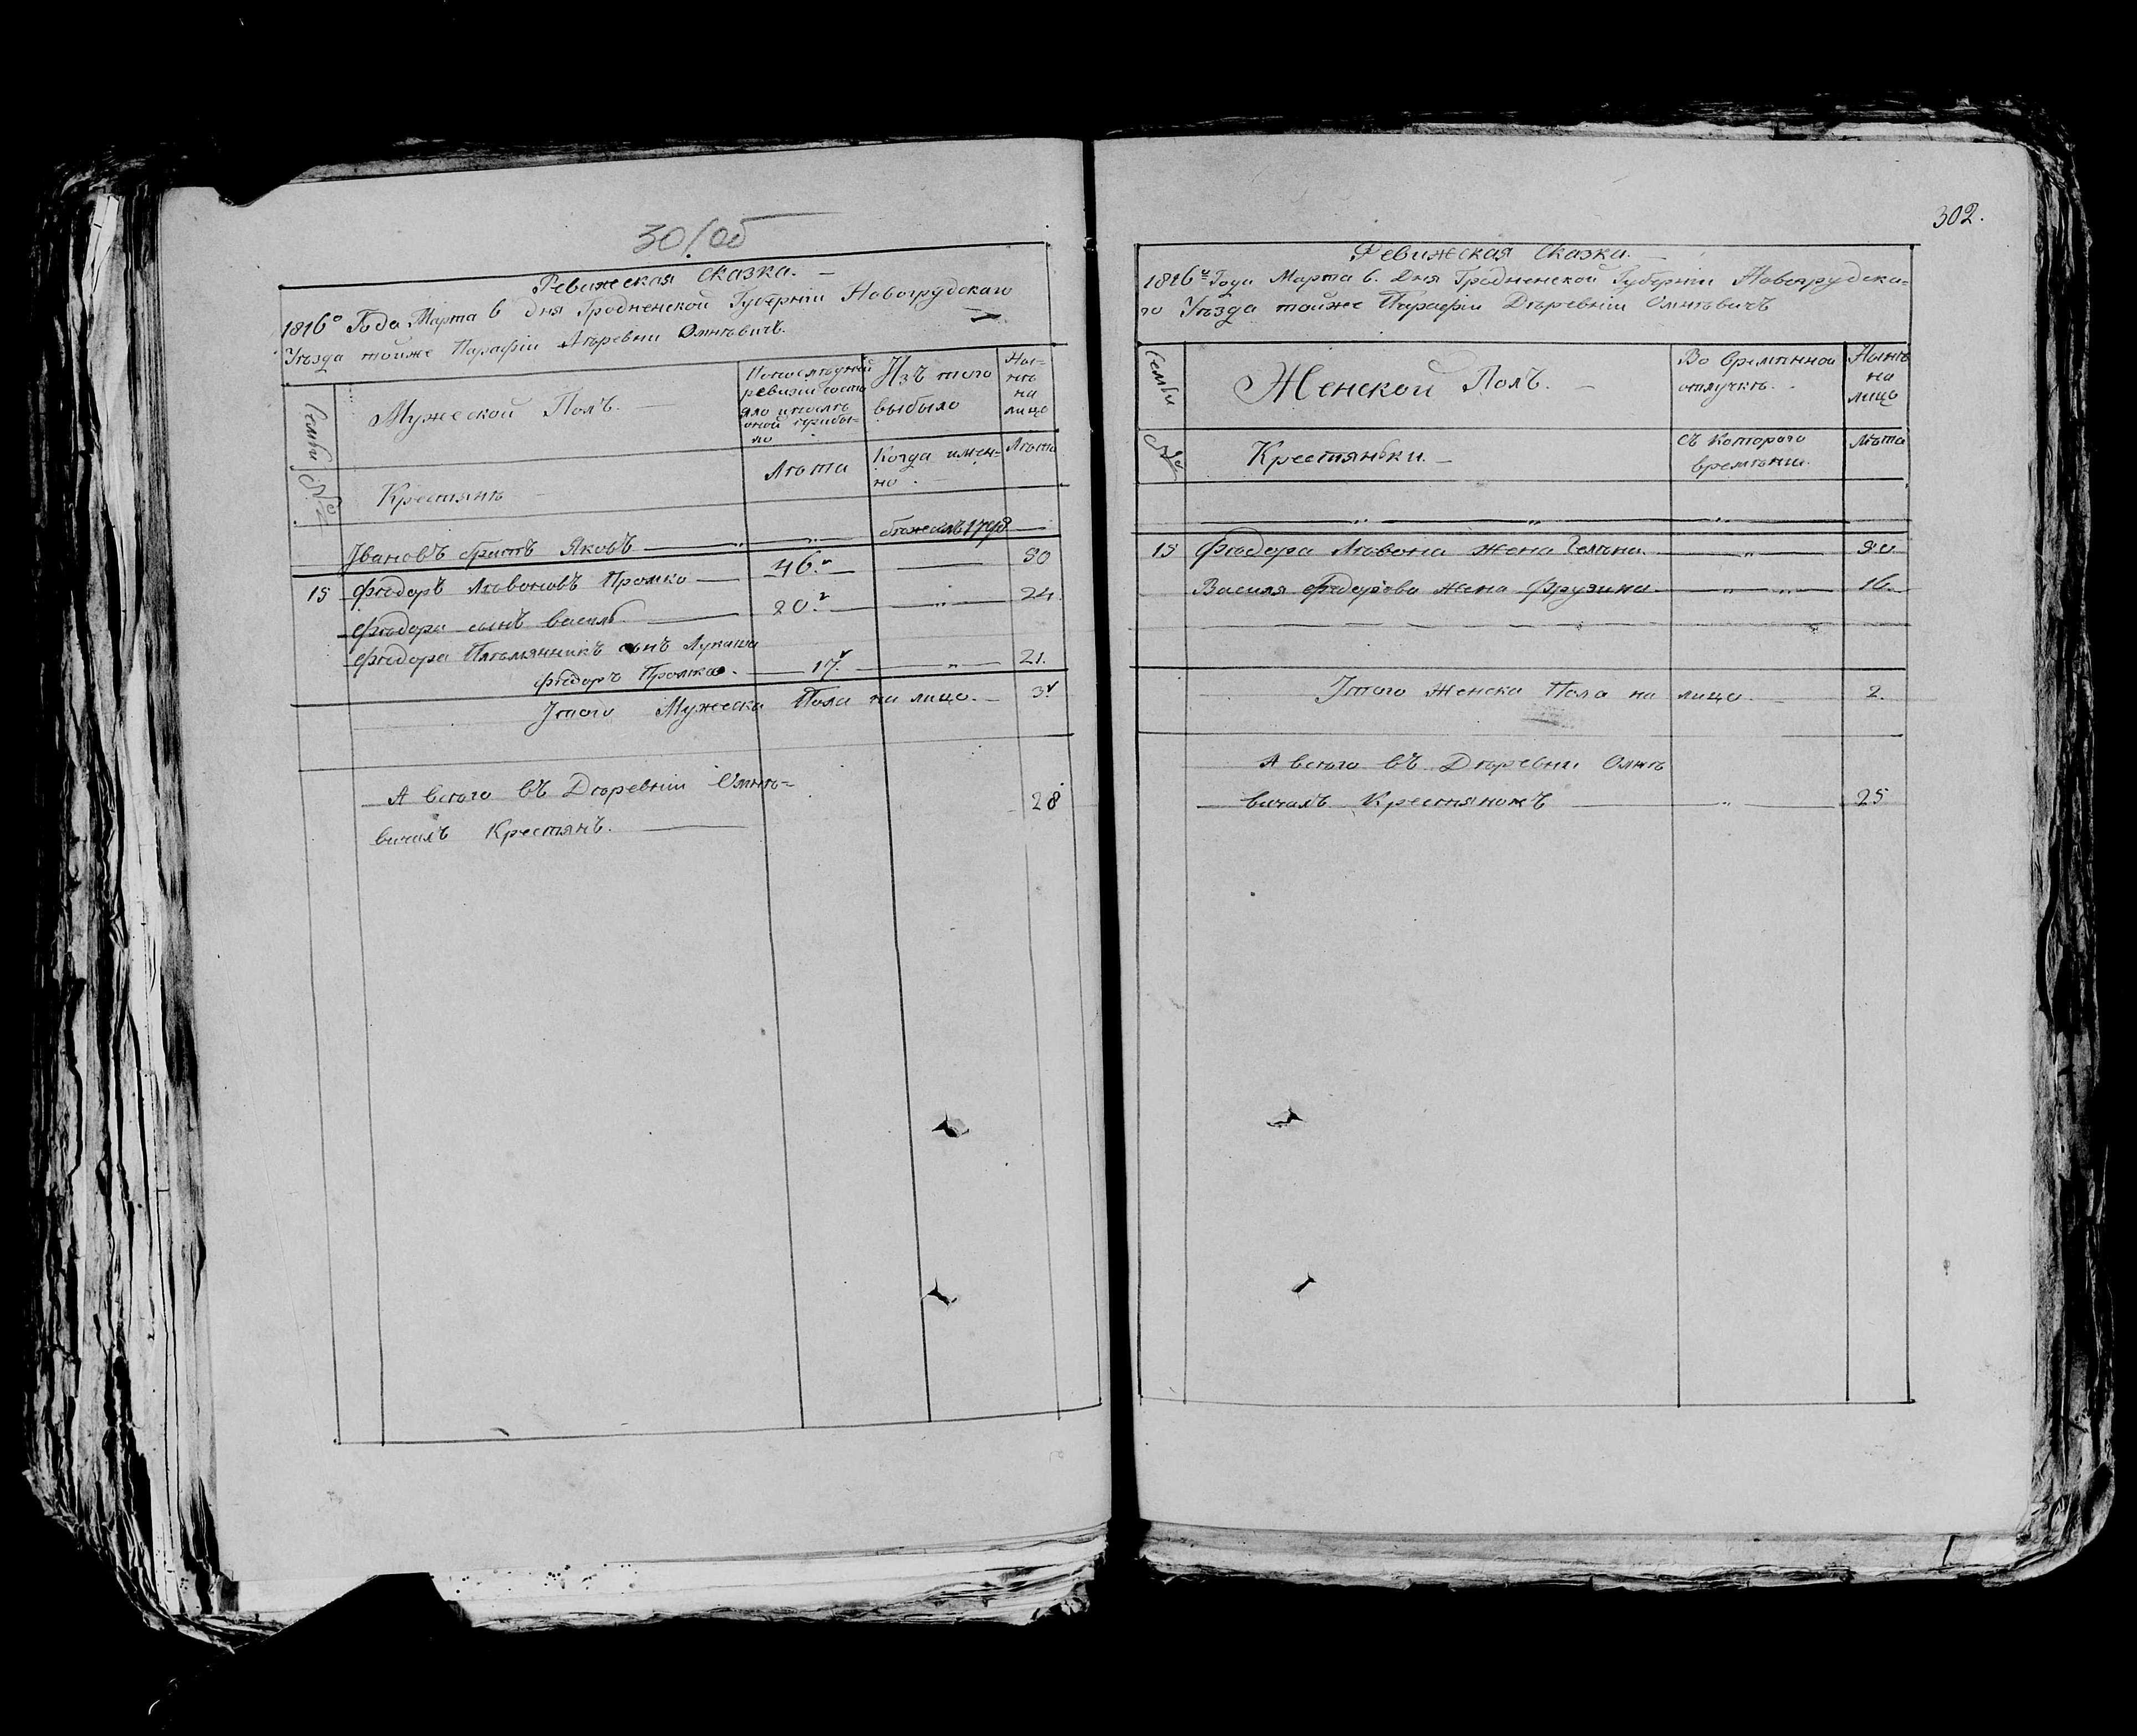 301об
Ревижская Сказка.
1816º Года Марта 6 дня Гродненской Губерніи Новогрудскаго
Уѣзда тойже Парафіи Дѣревни Омнѣвичъ.
Семьи №
Мужеской Полъ.
Крестянѣ
Попослѣдней
ревизіи состо
яло ипослѣ
оной прибы-
ло
Лѣта
Изъ того
выбыло
Когда имен-
но.
Ны-
нѣ
на
лицо
Лѣта
Ивановъ братъ Яковъ 1798
15 Фѣдоръ Лѣвоновъ Промко 46. 50
Фѣдора сынъ Василь. 20. 24.
Фѣдора Плѣмянникъ сынъ Лукаша
Фѣдоръ Промко. 17. 21.
Итого Мужеска Пола на лицо. 3
А всѣго въ Дѣревніи Омнѣ-
вичахъ Крестянъ. 28
302.
Ревижская Сказка.
1816 Года Марта 6. Дня Гродненской Губерніи Новогрудска-
го Уѣзда тойже Парафіи Дѣревніи Омнѣвичъ
Семьи №
Женской Полъ.
Крестянки.
Во врѣмянной
отлучкѣ.
съ Которого
врѣмѣни.
Нынѣ
на
лицо
Лѣта
15 Фѣдора Лѣвона жена 50.
Василя Фѣдорова жена Фрузина 16.
Итого Женска Пола на лицо 2.
А всѣго въ Дѣревни Омнѣ
вичахъ Крестянокъ 25